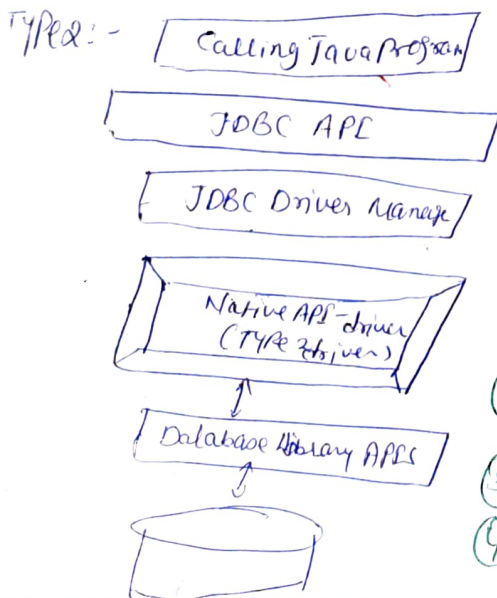 TYPe2:-
Calling Java Program
JDBC API
JDBC Driver Manage
Native API-driver
(TYPe 2driver)
Database Library APIs